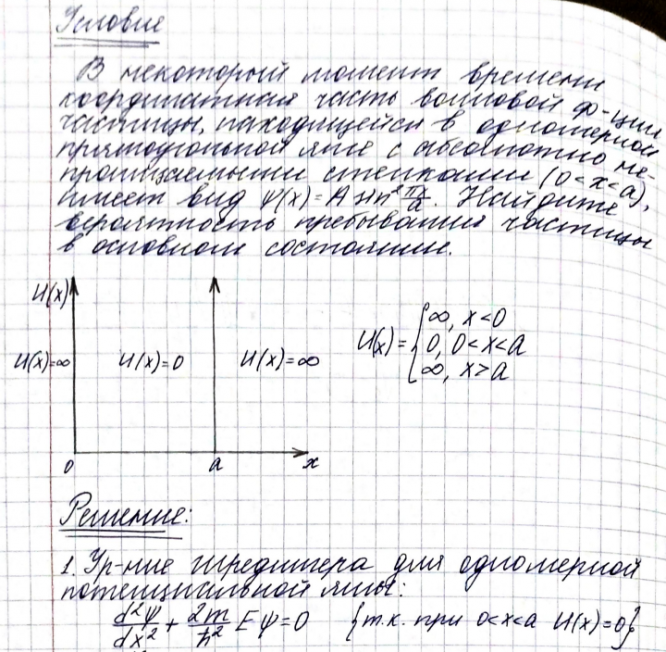 Условие
В некоторый момент времени
координатная часть волновой ф-ции
частицы, находящейся в одномерной
прямоугольной яме с абсолютно не-
проницаемыми стенками (0<x<a),
имеет вид ψ(x)=A sin² πx/a. Найдите
вероятность пребывания частицы
в основном состоянии.
U(x)
U(x)=∞ U(x)=0 U(x)=∞
0 a x
U(x)= { ∞, x<0
0, 0<x<a
∞, x>a
Решение:
1. Ур-ние Шредингера для одномерной
потенциальной ямы:
d²ψ/dx² + 2m/ħ² Eψ=0 {т.к. при 0<x<a U(x)=0}